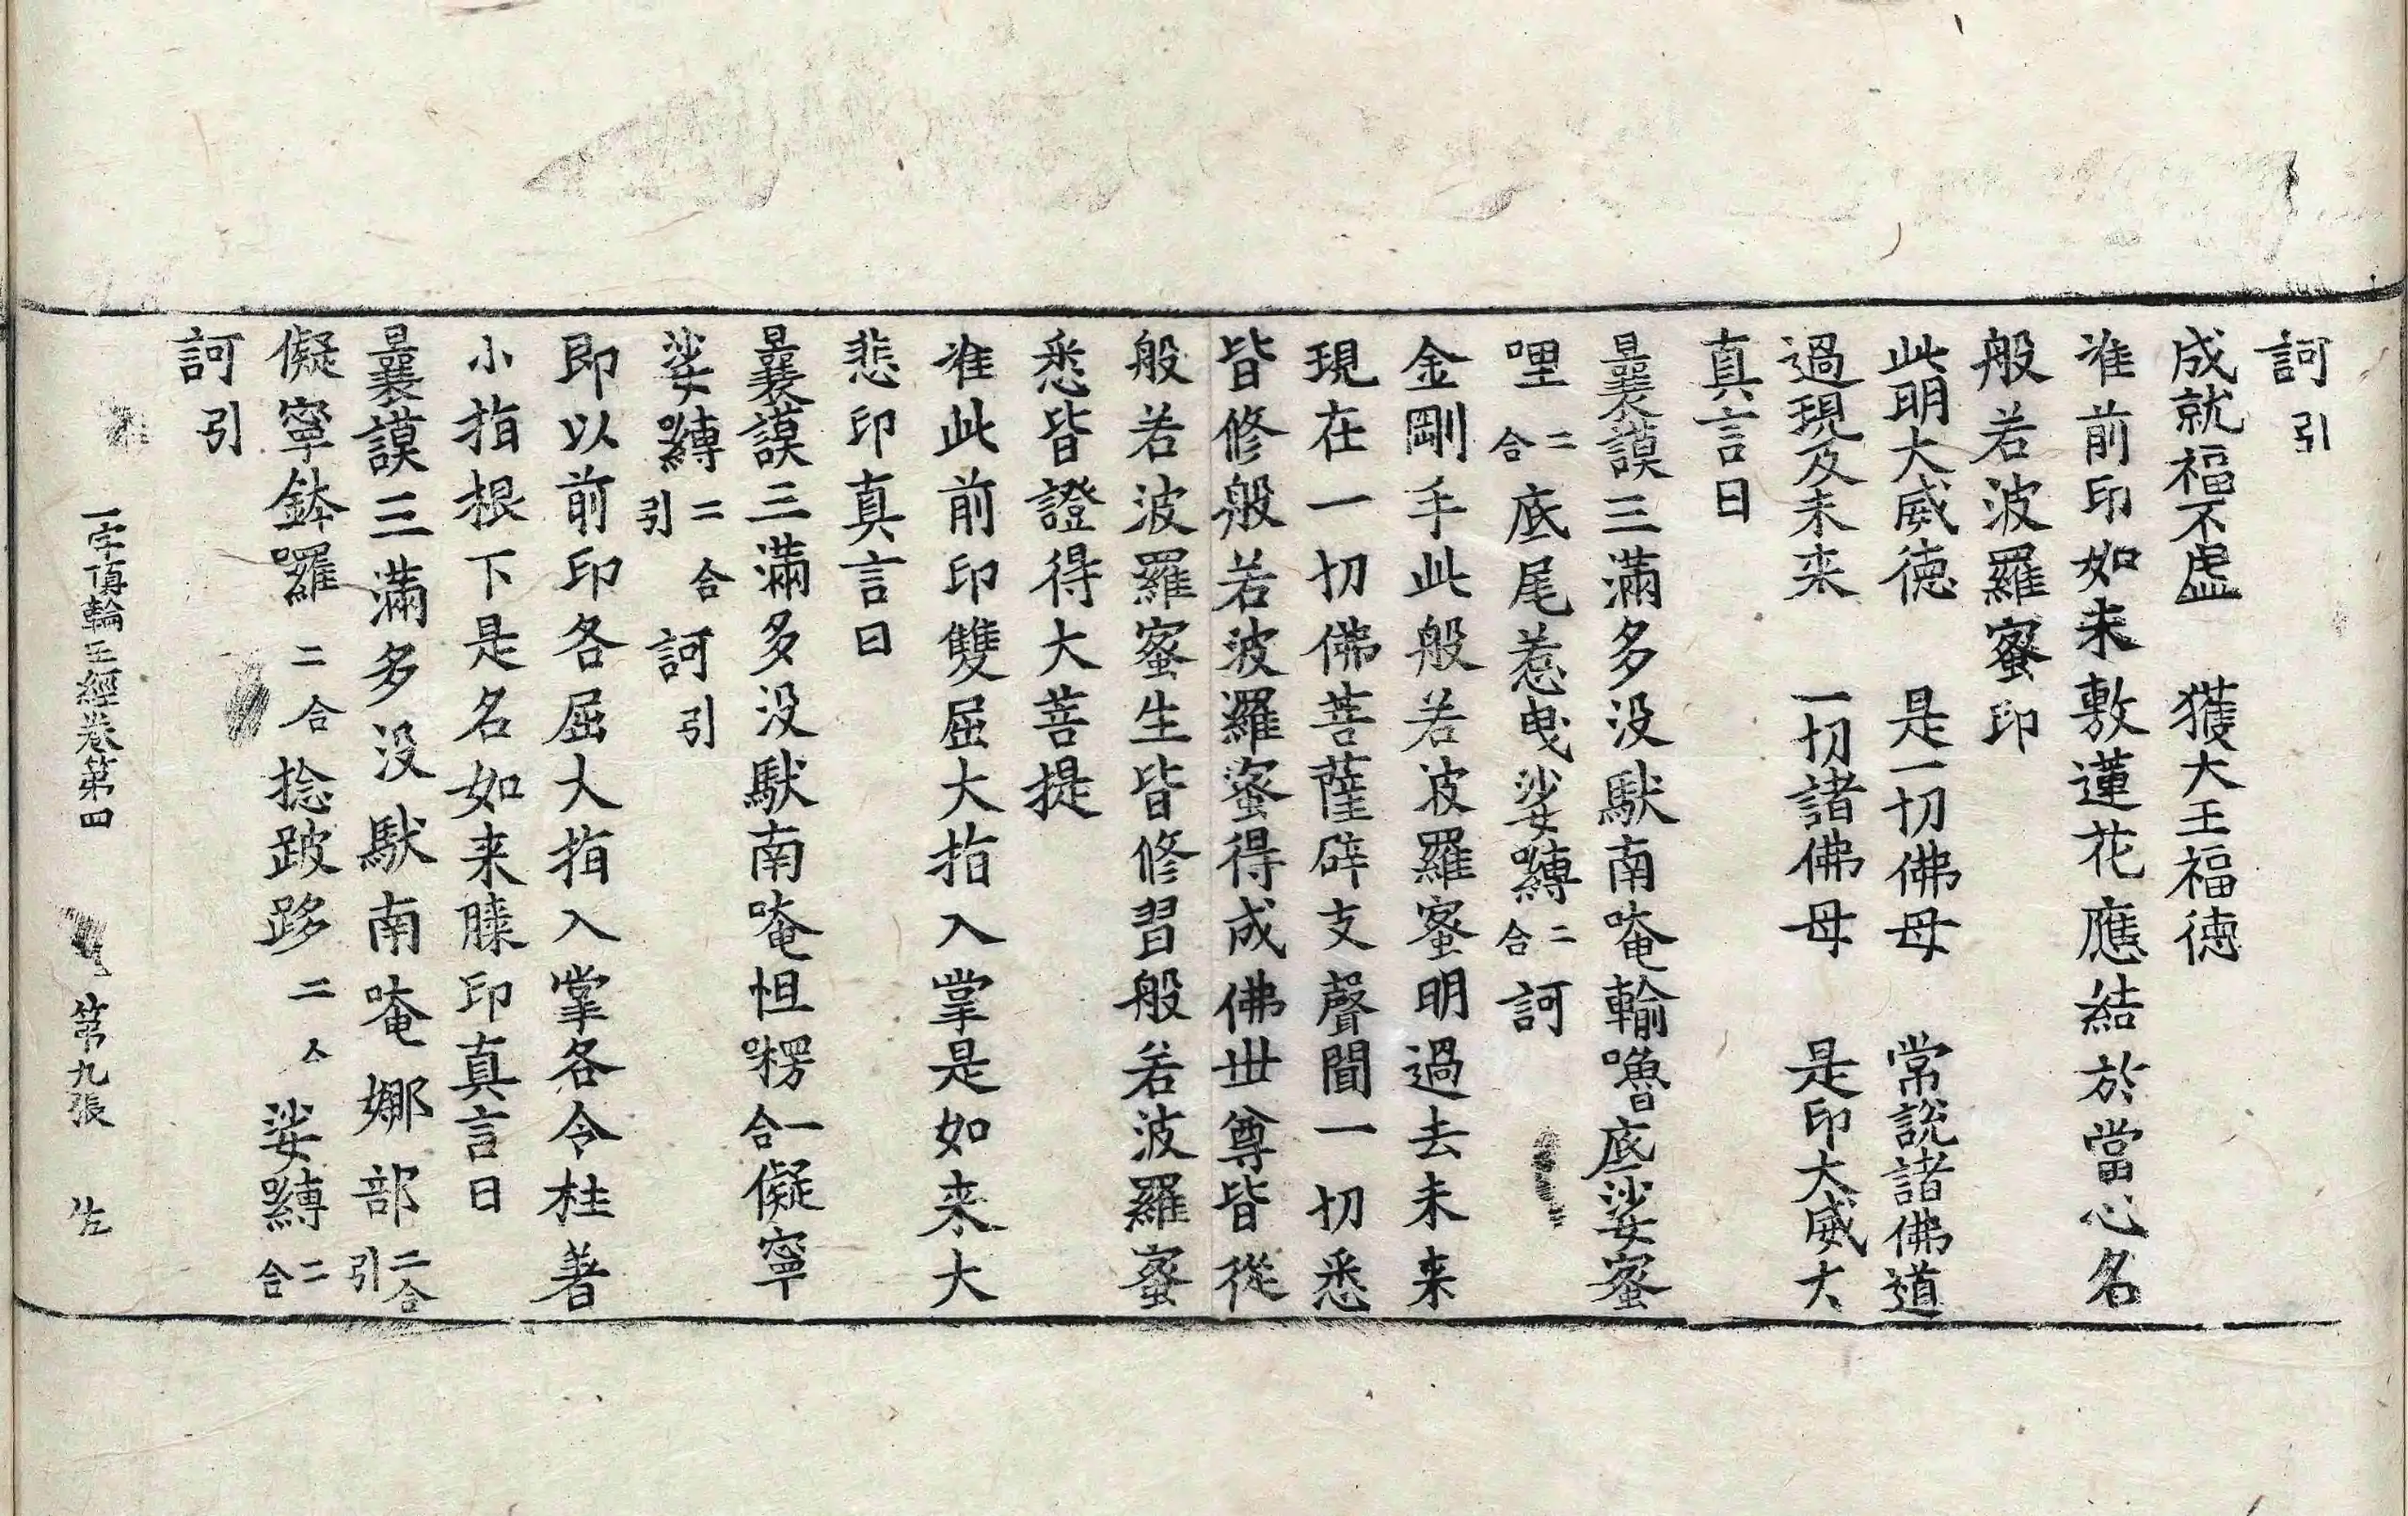 訶引
成就福不虛　獲大王福德
准前印如来敷蓮花應結於當心名
般若波羅蜜印
此明大威德　是一切佛母　常說諸佛道
過現及未来　一切諸佛母　是印大威大
真言曰
曩謨三滿多没馱南唵輸嚕底娑蜜
哩二合底尾惹曳娑嚩二合訶
金剛手此般若波羅蜜明過去未来
現在一切佛菩薩辟支聲聞一切悉
皆修般若波羅蜜得成佛世尊皆從
般若波羅蜜生皆修習般若波羅蜜
悉皆證得大菩提
准此前印雙屈大指入掌是如来大
悲印真言曰
曩謨三滿多没馱南唵怛㘄一合儗寧
娑嚩二合引訶引
即以前印各屈大指入掌各令柱著
小指根下是名如来膝印真言曰
曩謨三滿多没馱南唵娜部二合引
儗寧鉢囉二合捻跛跢二合娑嚩二合
訶引
一字頂輪王經卷第四　第九張